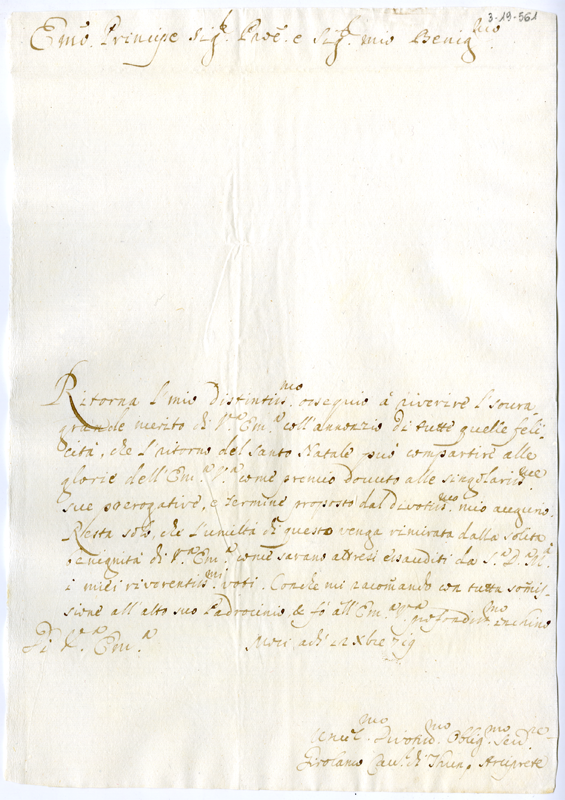 3-19-561
Em̃o. Principe Sig.r Pad.e e Sig.r mio Benig.mo
Ritorna l'mio distintiss.mo ossequio à riverire l'soura
grande merito di V.ra Em.a coll'annonzio di tutte quelle feli-
cità, che l'ritorno del Santo Natale può compartire alle
glorie dell'Em.a V.a come premio douuto alle singolariss.me
sue prerogative, e termine proposto dal devotiss.mo mio augurio.
Resta solo, che l'umiltà di questo venga rimirata dalla solita
benignità di V.ra Em.a come sarano altresi essauditi da S. D. M.tà
i miei riverentiss.mi voti. Con che mi racom̃ando con tutta som̃is-
sione all'alto suo Padrocinio & fò all'Em.a V.a profondiss.mo inchino
Di V.ra Em.a Mori adi 12 Xbre 719
Umil.mo Devotis.mo Oblig.mo Ser.re
Girolamo Cau.r di Thun, Arciprete